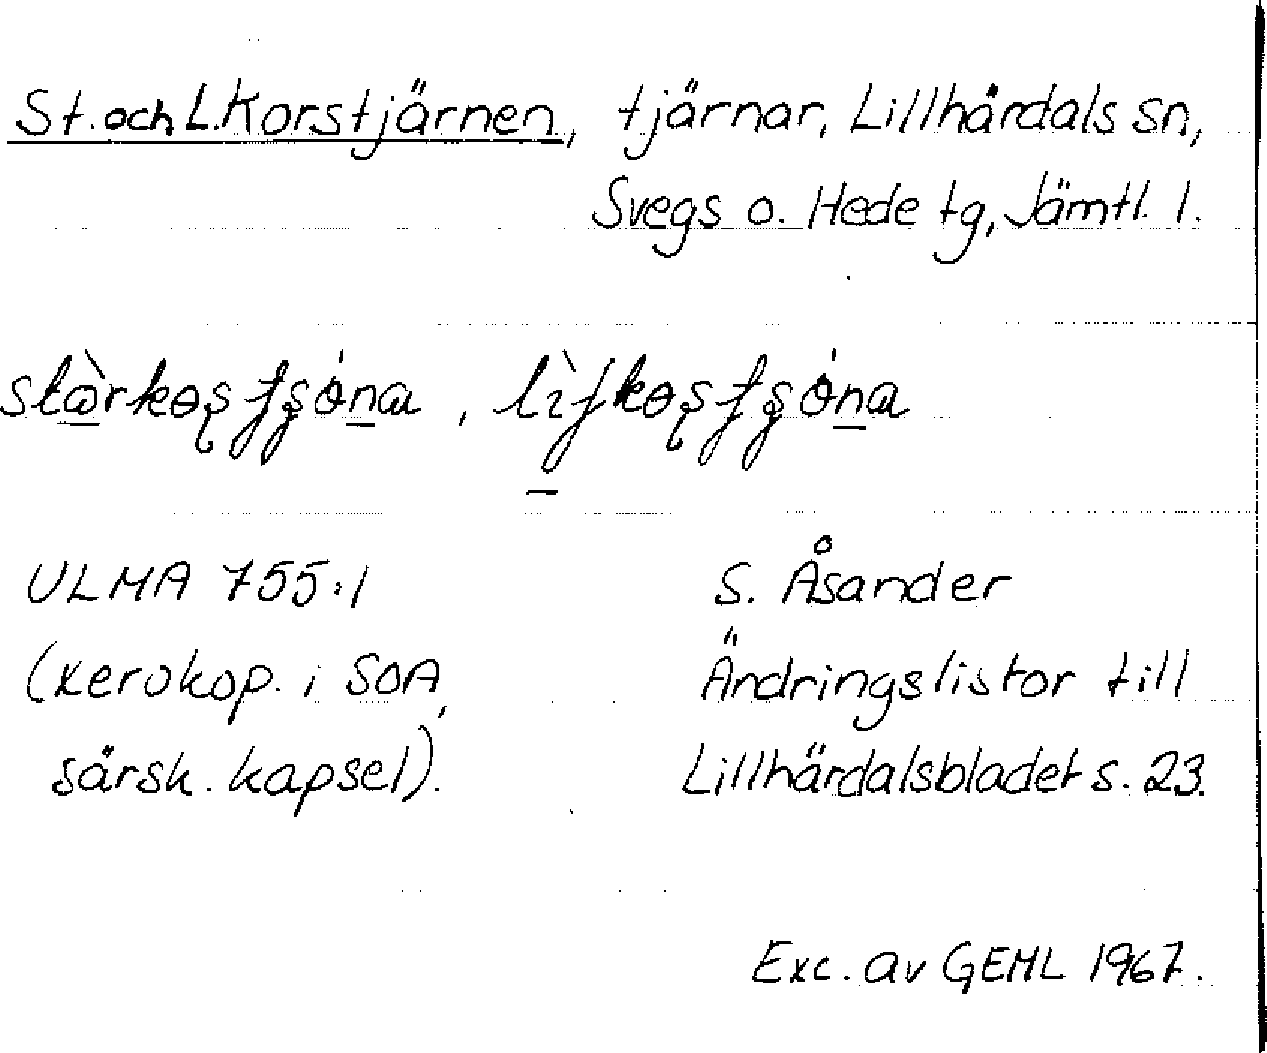 St. och L. Korstjärnen, tjärnar, Lillhärdals sn,
Svegs o. Hede tg, Jämtl. l.
ULMA 755:1
(xerokop. i SOA,
särsk. kapsel).
S. Åsander
Ändringslistor till
Lillhärdalsbladet s. 23.
Exc. av GEML 1967.